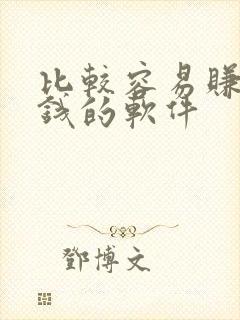 比較容易賺
錢的軟件
鄧博文